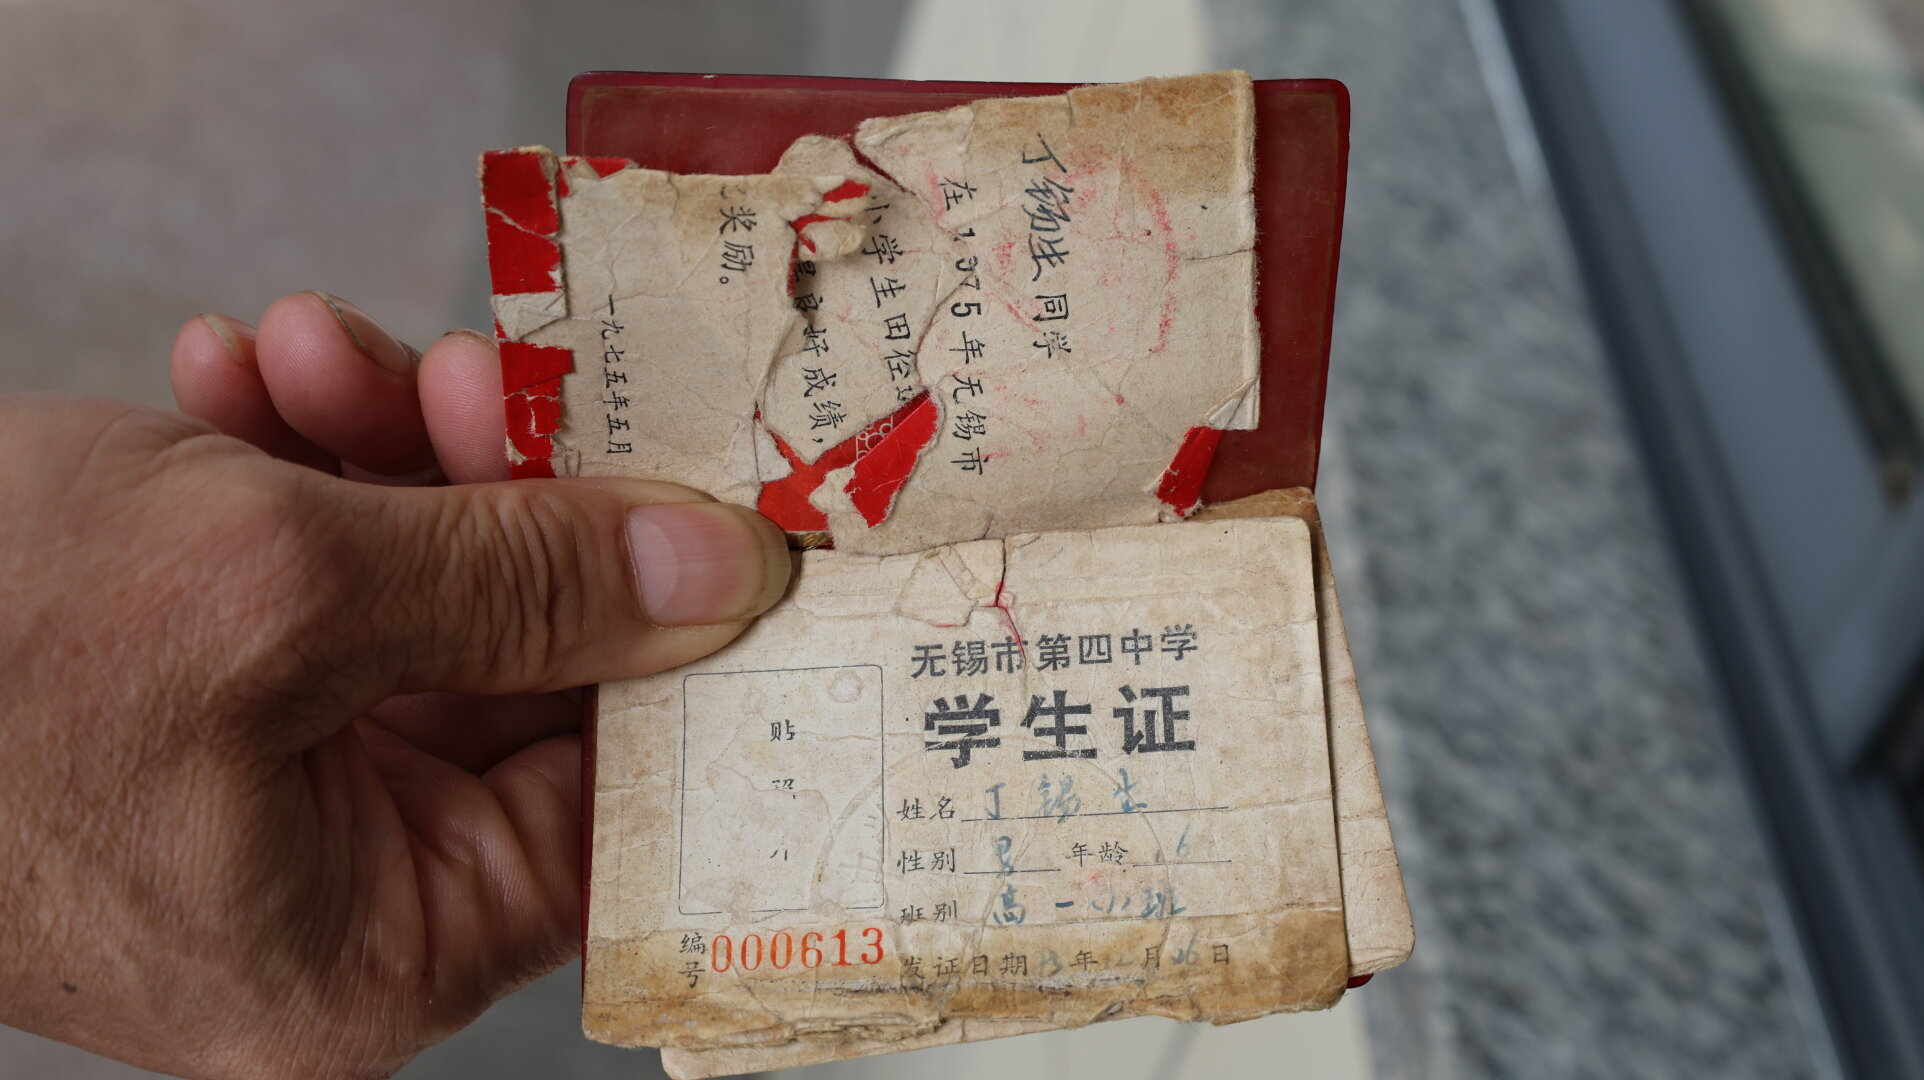 丁锡生同学
在1975年无锡市
小学生田径
良好成绩,
奖励。
一九七五年五月
无锡市第四中学
学生证
贴
姓名 丁锡生
性别 男 年龄
班别 高一小班
编号 000613
发证日期 年 月 26 日